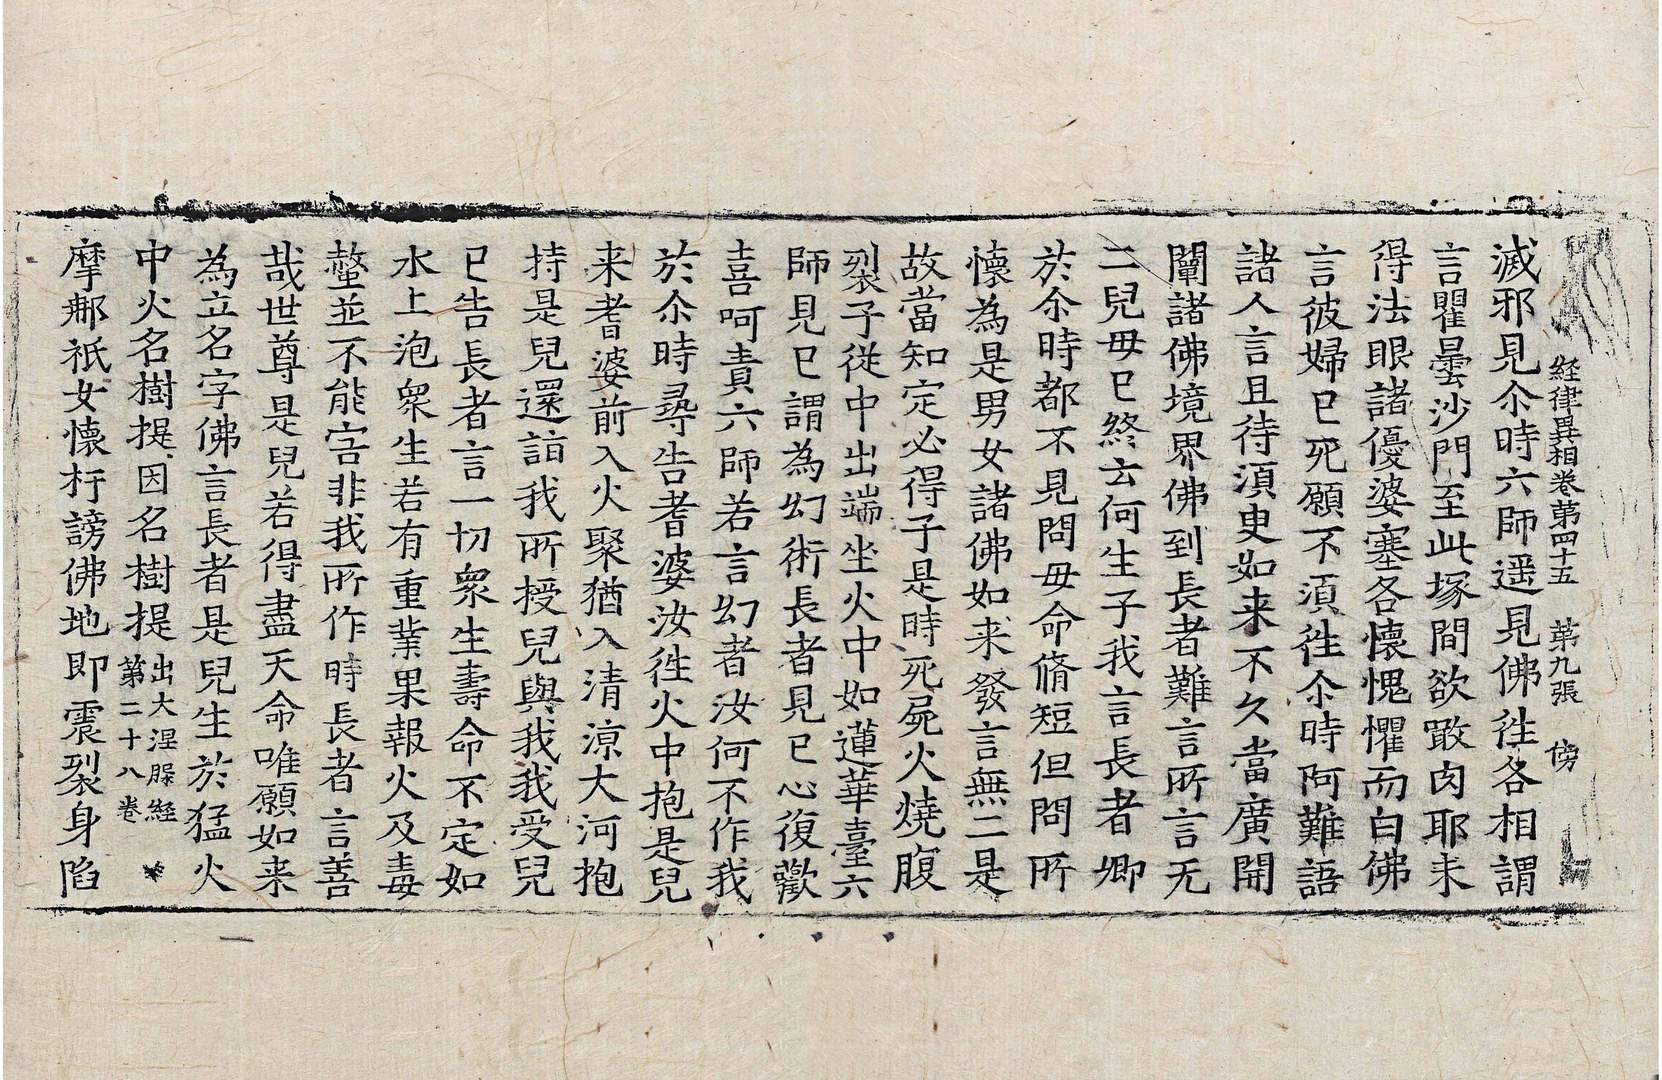 経律異相卷第四十五 第九張 傍
滅邪見尒時六師遥見佛徃各相謂
言瞿曇沙門至此塚間欲噉肉耶未
得法眼諸優婆塞各懷愧懼而白佛
言彼婦已死願不湏徃尒時阿難語
諸人言且待湏臾如来不久當廣開
闡諸佛境界佛到長者難言所言无
二兒母已終云何生子我言長者卿
於尒時都不見問母命脩短但問所
懷為是男女諸佛如来發言無二是
故當知定必得子是時死屍火燒腹
裂子從中出端坐火中如蓮華臺六
師見已謂為幻術長者見已心復歡
喜呵責六師若言幻者汝何不作我
於尒時尋告耆婆汝徃火中抱是兒
来耆婆前入火聚猶入清涼大河抱
持是兒還詣我所授兒與我我受兒
已告長者言一切衆生壽命不定如
水上泡衆生若有重業果報火及毒
螫並不能害非我所作時長者言善
哉世尊是兒若得盡天命唯願如来
為立名字佛言長者是兒生於猛火
中火名樹提因名樹提 出大涅脲経第二十八卷
摩郍祇女懷杅謗佛地即震裂身陷